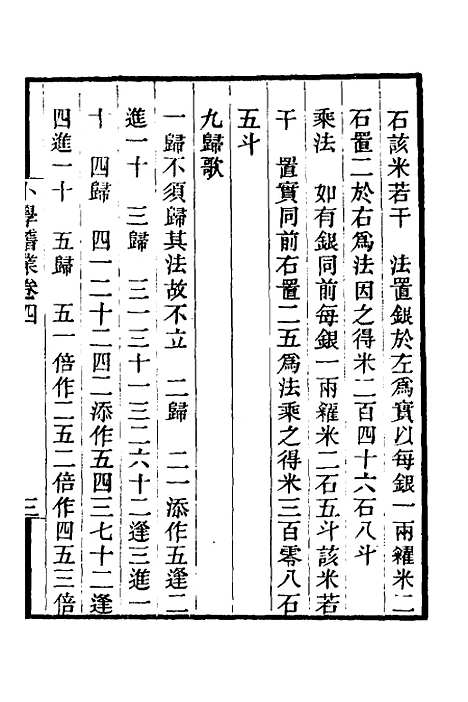 石該米若干　法置銀於左爲實以每銀一兩糴米二
石置二於右爲法因之得米二百四十六石八斗
乘法　如有銀同前每銀一兩糴米二石五斗該米若
干　置實同前右置二五爲法乘之得米三百零八石
五斗
九歸歌
一歸不須歸其法故不立　二歸　二一添作五逢二
進一十　三歸　三一三十一三二六十二逢三進一
十　四歸　四一二十二四二添作五四三七十二逢
四進一十　五歸　五一倍作二五二倍作四五三倍
小學稽業卷四　三